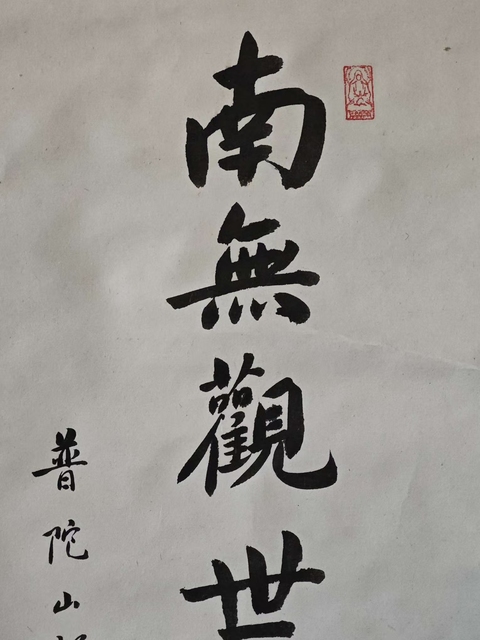 南無觀世
普陀山